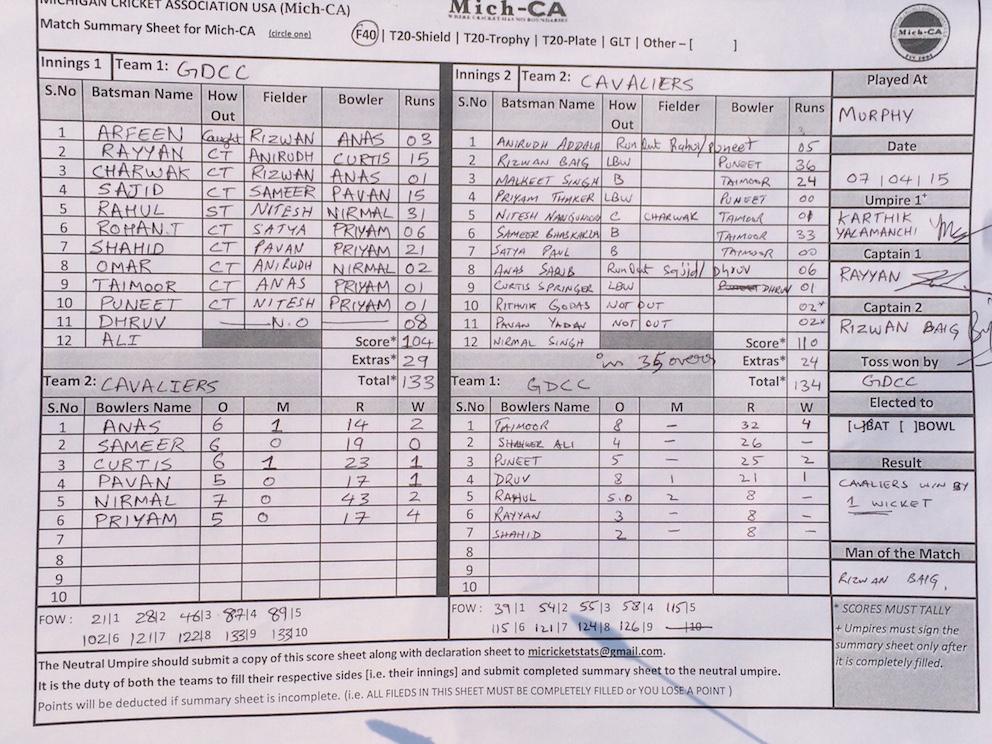 MICHIGAN CRICKET ASSOCIATION USA (Mich-CA)
Mich-CA
WHERE CRICKET HAS NO BOUNDARIES
Match Summary Sheet for Mich-CA (circle one) F40 | T20-Shield | T20-Trophy | T20-Plate | GLT | Other – [ ]
Mich-CA
Innings 1 Team 1: GDCC
S.No Batsman Name How Out Fielder Bowler Runs
1 ARFEEN Caught RIZWAN ANAS 03
2 RAYYAN CT ANIRUDH CURTIS 15
3 CHARWAK CT RIZWAN ANAS 01
4 SAJID CT SAMEER PAVAN 15
5 RAHUL ST NITESH NIRMAL 31
6 ROHAN.T CT SATYA PRIYAM 06
7 SHAHID CT PAVAN PRIYAM 21
8 OMAR CT ANIRUDH NIRMAL 02
9 TAIMOOR CT ANAS PRIYAM 01
10 PUNEET CT NITESH PRIYAM 01
11 DHRUV N.O 08
12 ALI Score* 104
Extras* 29
Total* 133
Team 2: CAVALIERS
S.No Bowlers Name O M R W
1 ANAS 6 1 14 2
2 SAMEER 6 0 19 0
3 CURTIS 6 1 23 1
4 PAVAN 5 0 17 1
5 NIRMAL 7 0 43 2
6 PRIYAM 5 0 17 4
7
8
9
10
FOW : 21/1 28/2 46/3 87/4 89/5
102/6 121/7 122/8 133/9 133/10
Innings 2 Team 2: CAVALIERS
S.No Batsman Name How Out Fielder Bowler Runs
1 ANIRUDH ADDALA Run Out Rahul/Puneet 05
2 RIZWAN BAIG LBW PUNEET 36
3 MALKEET SINGH B TAIMOOR 24
4 PRIYAM THAKER LBW PUNEET 00
5 NITESH C CHARWAK TAIMOOR 01
6 SAMEER B TAIMOOR 33
7 SATYA PAUL B TAIMOOR 00
8 ANAS SARIB Run Out Sajid/ Dhruv 06
9 CURTIS SPRINGER LBW DHRUV 01
10 RITHVIK GODAS NOT OUT 02*
11 PAVAN YADAV NOT OUT 02*
12 NIRMAL SINGH Score* 110
in 35 overs Extras* 24
Total* 134
Team 1: GDCC
S.No Bowlers Name O M R W
1 TAIMOOR 8 – 32 4
2 ALI 4 – 26 –
3 PUNEET 5 – 25 2
4 DRUV 8 1 21 1
5 RAHUL 5.0 2 8 –
6 RAYYAN 3 – 8 –
7 SHAHID 2 – 8 –
8
9
10
FOW : 39/1 54/2 55/3 58/4 115/5
115/6 121/7 124/8 126/9 —/10—
Played At
MURPHY
Date
07/04/15
Umpire 1+
KARTHIK
YALAMANCHI
Captain 1
RAYYAN
Captain 2
RIZWAN BAIG
Toss won by
GDCC
Elected to
[✓]BAT [ ]BOWL
Result
CAVALIERS WIN BY
1 WICKET
Man of the Match
RIZWAN BAIG.
* SCORES MUST TALLY
+ Umpires must sign the
summary sheet only after
it is completely filled.
The Neutral Umpire should submit a copy of this score sheet along with declaration sheet to micricketstats@gmail.com.
It is the duty of both the teams to fill their respective sides [i.e. their innings] and submit completed summary sheet to the neutral umpire.
Points will be deducted if summary sheet is incomplete. (i.e. ALL FILEDS IN THIS SHEET MUST BE COMPLETELY FILLED or YOU LOSE A POINT )